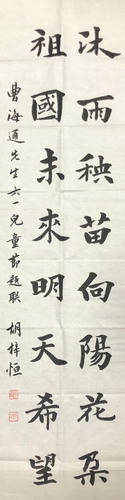 沐雨秧苗向陽花朵
祖國未來明天希望
曹海通先生六一兒童節題聯 胡梓恒